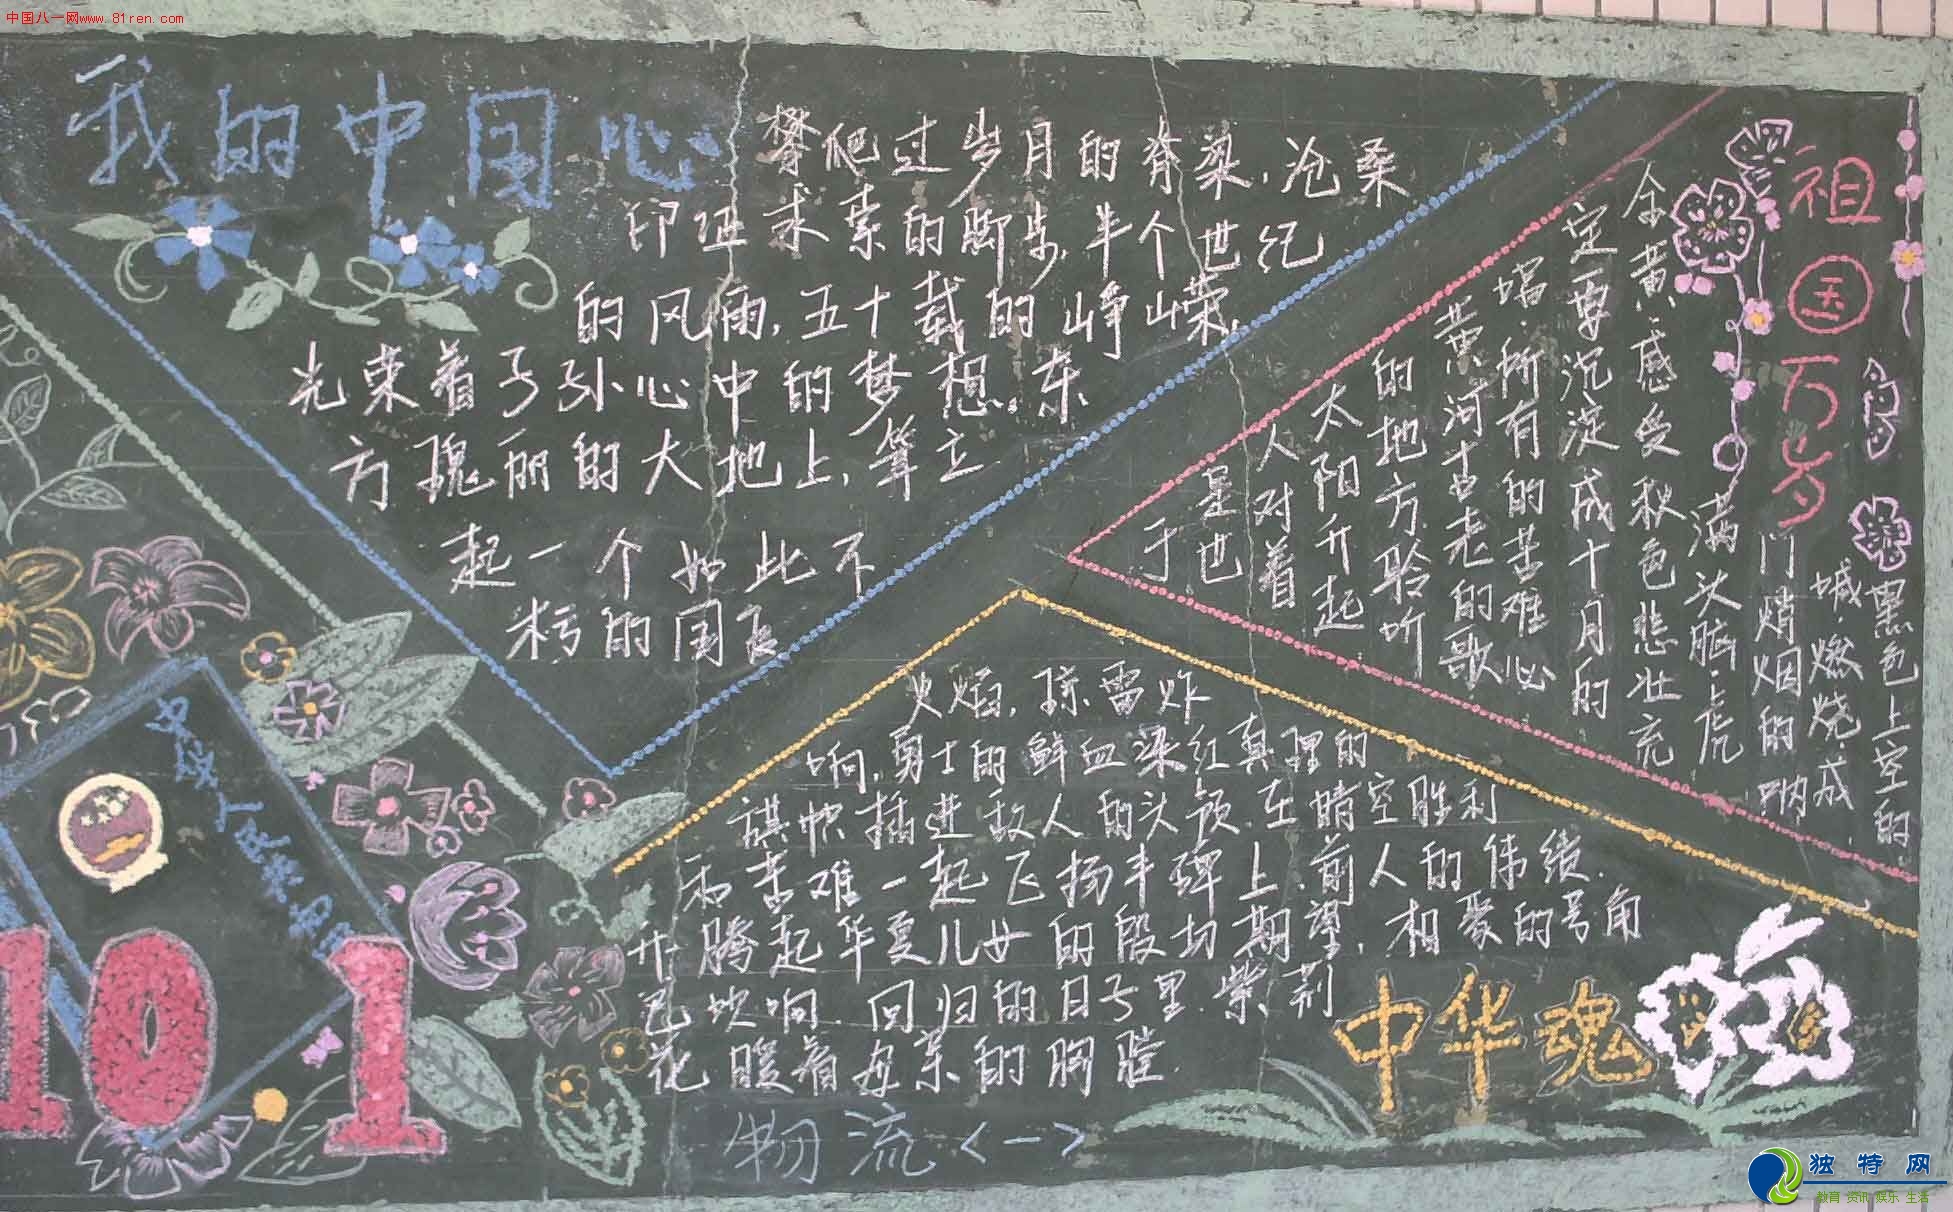 中国八一网www.81ren.com
我的中国心
攀爬过岁月的脊梁，沧桑
印证求索的脚步，半个世纪
的风雨，五十载的峥嵘，
光荣着子孙心中的梦想，东
方瑰丽的大地上，耸立
起一个如此不
朽的国度
祖国万岁
黑色上空的
喊·燃烧成
门硝烟的呐
满头脑·虎
金黄·感受秋色悲壮充
定要沉淀成十月的
嵣·所有的苦难心
黄河古老的歌
的地方聆听
太阳升起
人对着
是也
于
火焰，惊雷炸
响，勇士的鲜血染红真理的
旗帜插进敌人的头颅，在晴空胜利
和苦难一起飞扬丰碑上，前人的伟绩，
升腾起华夏儿女的殷切期望，相聚的号角
已吹响，回归的日子里，紫荆
花暖着母亲的胸膛，
中华魂
物流<一>
中华人民共和国
101
独特网
教育 资讯 娱乐 生活